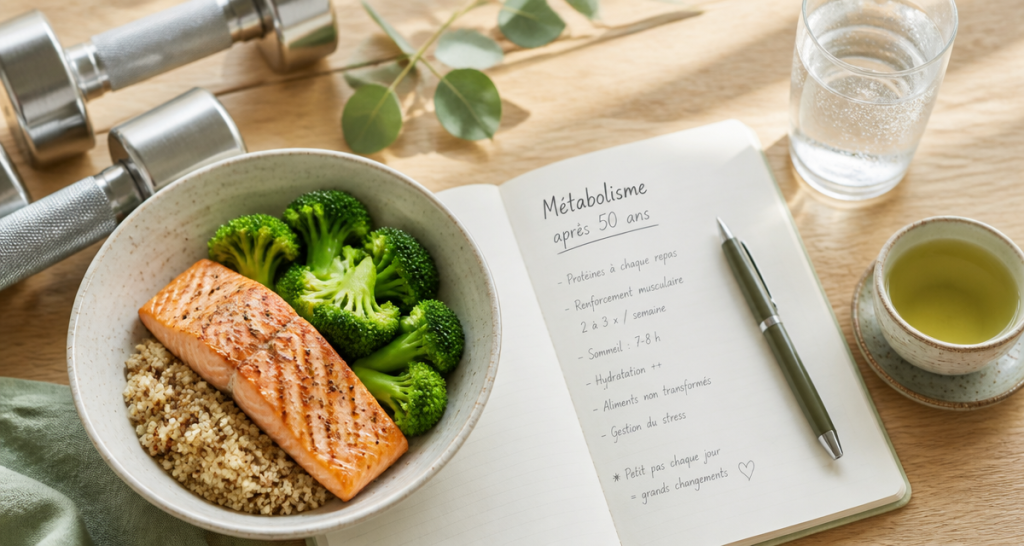 Métabolisme
après 50 ans
- Protéines à chaque repas
- Renforcement musculaire
2 à 3 x / semaine
- Sommeil : 7-8 h
- Hydratation ++
- Aliments non transformés
- Gestion du stress
* Petit pas chaque jour
= grands changements ♡